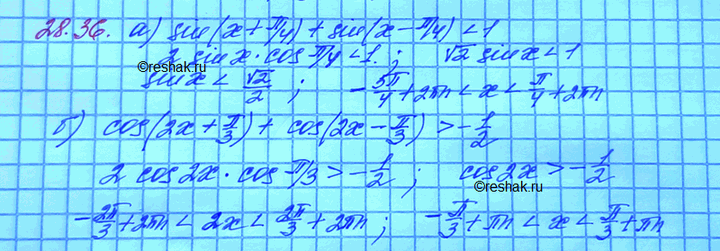 28.36. а) sin(x+π/4)+sin(x-π/4)<1
2 sinx·cos π/4<1. ; √2 sinx<1
©reshak.ru
sinx < √2/2 ; -5π/4+2πn<x<π/4+2πn
б) cos(2x+π/3)+cos(2x-π/3)>-1/2
2 cos2x·cos π/3>-1/2 ; cos2x>-1/2
©reshak.ru
-2π/3+2πn<2x<2π/3+2πn; -π/3+πn<x<π/3+πn